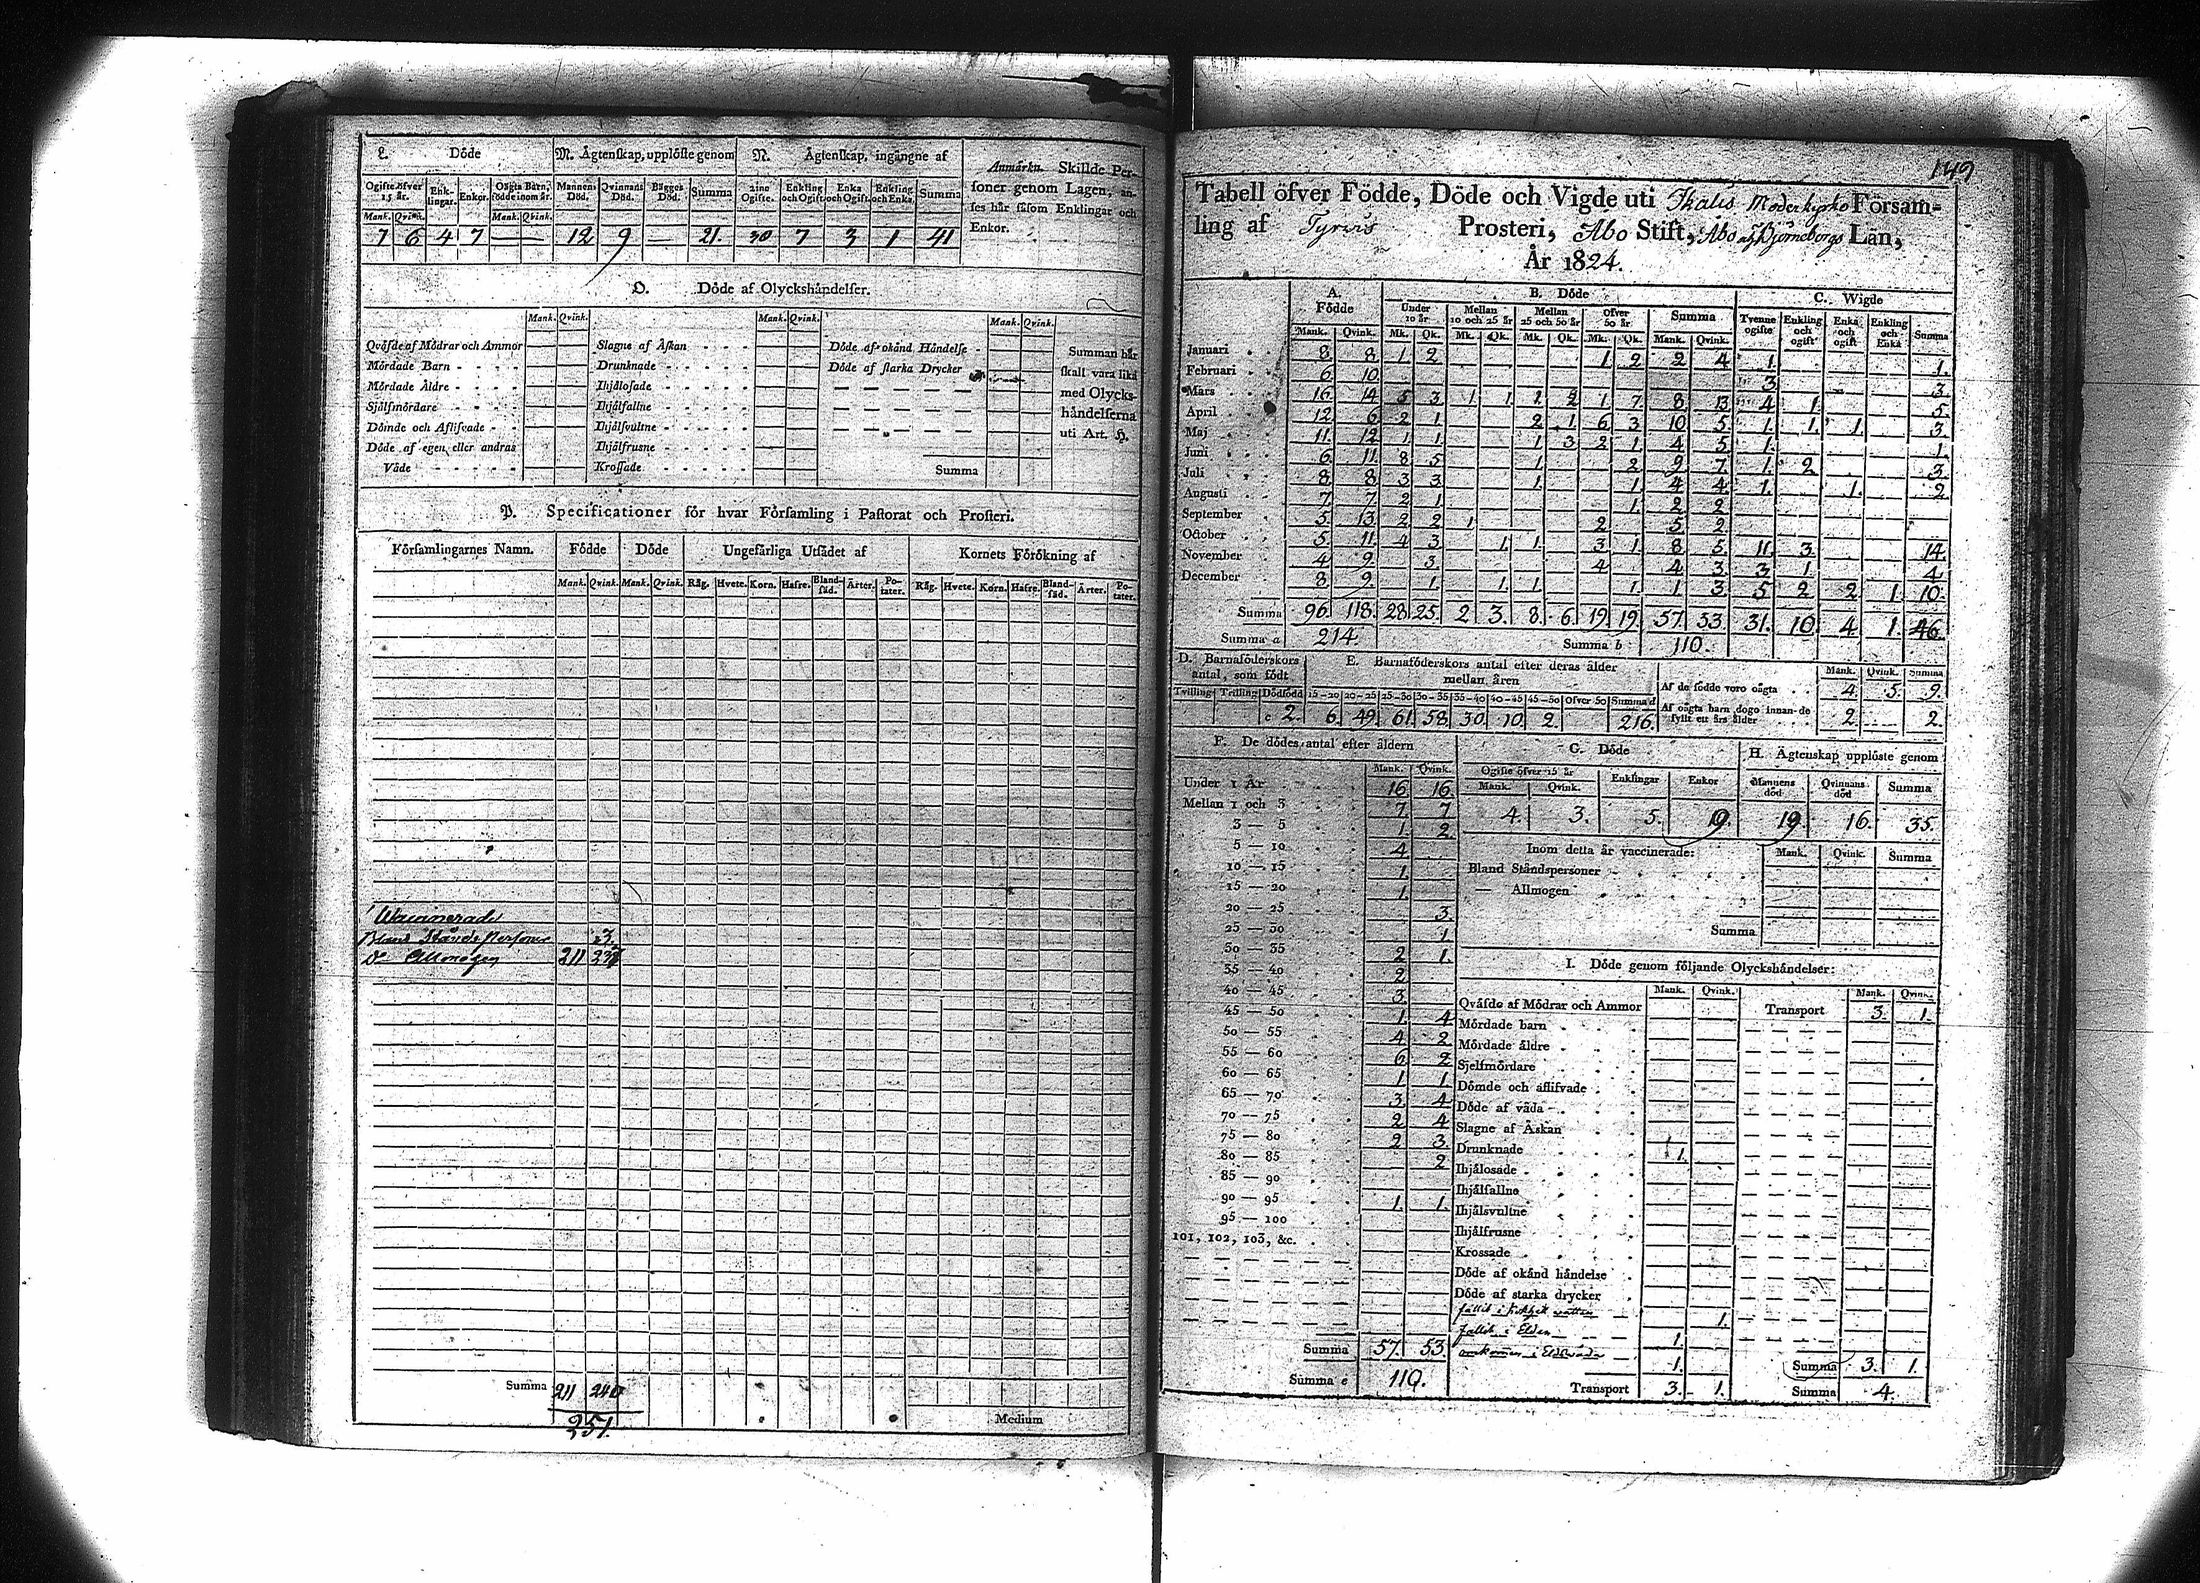 L. Döde M. Ågtenskap, upplöste genom N. Ågtenskap, ingångne af Anmärkn. Skillde Per-
soner genom Lagen, an-
ses hår såsom Enklingar och
Enkor.
Ogifte öfver 15 år. Enk-lingar. Enkor. Oägta Barn, födde inom år. Mannens Död. Qvinnans Död. Bågges Död. Summa 2:ne Ogifte. Enkling och Ogift Enka och Ogift Enkling och Enka. Summa
Mank. Qvink. Mank. Qvink.
7 6 4 7 — — 12 9 — 21. 30 7 3 1 41
O. Döde af Olyckshåndelser.
Mank. Qvink. Mank. Qvink. Mank. Qvink.
Qvåfde af Mödrar och Ammor Slagne af Åskan Döde af okånd Håndelse Summan hår
Mördade Barn Drunknade Döde af starka Drycker skall vara lika
Mördade Åldre Ihjålofade med Olycks-
Sjålfmördare Ihjålfallne håndelserna
Dömde och Aflifvade Ihjålsvultne uti Art. H.
Döde af egen eller andras Ihjålfrusne
Våde Krossade Summa
P. Specificationer för hvar Församling i Pastorat och Prosteri.
Församlingarnes Namn. Födde Döde Ungefårliga Utsådet af Kornets Förökning af
Mank. Qvink. Mank. Qvink. Råg. Hvete. Korn. Hafre. Bland-såd. Årter. Po-tater. Råg. Hvete. Korn. Hafre. Bland-såd. Årter. Po-tater.
Waccinerade
Bland Stånds Personer 3.
Do Allmogen 211 237
Summa 211 240
251.
Medium
149
Tabell öfver Födde, Döde och Vigde uti Ikalis Moderkyrko Församling
ling af Tyrvis Prosteri, Åbo Stift, Åbo och Björneborgs Län,
År 1824.
A. Födde B. Döde C. Wigde
Under 10 år Mellan 10 och 25 år Mellan 25 och 50 år Öfver 50 år Summa Tvenne ogifte Enkling och ogift Enka och ogift Enkling och Enka Summa
Mank. Qvink. Mk. Qk. Mk. Qk. Mk. Qk. Mk. Qk. Mank. Qvink.
Januari 8 8 1 2 1 2 2 4 1. 1.
Februari 6 10 3 3.
Mars 16 14 5 3 1 1 1 2 1 7 8 13 4 1. 5.
April 12 6 2 1 2 1 6 3 10 5 1. 1. 1. 3.
Maj 11. 12 1 1 1 3 2 1 4 5 1. 1.
Juni 6 11. 8 5 1. 2 9 7 1. 2 3
Juli 8 8 3 3 1. 1 4 4 1. 1. 2
Augusti 7 7 2 1 1. 2 2
September 5. 13 2 2 1 2 5 2
October 5 11. 4 3 1. 1. 3 1. 8 5. 11. 3 14.
November 4 9. 3. 4 4 3 3 1. 4
December 8. 9. 1. 1. 1. 1. 1 3 5 2 2 1. 10.
Summa 96. 118. 28. 25. 2 3. 8. 6. 19. 19. 57. 53. 31. 10. 4. 1. 46.
Summa a 214. Summa b 110.
D. Barnaföderskors antal, som födt E. Barnaföderskors antal efter deras ålder mellan åren Mank. Qvink. Summa
Tvilling Trilling Dödfödd 15—20 20—25 25—30 30—35 35—40 40—45 45—50 Öfver 50 Summa d Af de födde voro oägta 4 5. 9.
c 2. 6. 49. 61. 58. 30. 10. 2. 216. Af oägta barn dogo innan de fyllt ett års ålder 2. 2.
F. De dödes antal efter åldern
Mank. Qvink.
Under 1 År 16. 16.
Mellan 1 och 3 7. 7
3 — 5 1. 2
5 — 10 4.
10 — 15 1.
15 — 20 1.
20 — 25 3.
25 — 30 1.
30 — 35 2 1.
35 — 40 2
40 — 45 3.
45 — 50 1. 4
50 — 55 4 2
55 — 60 6 2
60 — 65 1 1
65 — 70 3. 4
70 — 75 2 4
75 — 80 2 3.
80 — 85 2
85 — 90
90 — 95 1. 1.
95 — 100
101, 102, 103, &c.
Summa 57. 53.
Summa e 110.
G. Döde H. Ågtenskap upplöste genom
Ogifte öfver 15 år Enklingar Enkor Mannens död Qvinnans död Summa
Mank. Qvink.
4. 3. 5. 19. 16. 35.
Inom detta år vaccinerade: Mank. Qvink. Summa
Bland Ståndspersoner
— Allmogen
Summa
I. Döde genom följande Olyckshåndelser:
Mank. Qvink. Mank. Qvink.
Qvåfde af Mödrar och Ammor Transport 3. 1.
Mördade barn
Mördade åldre
Sjelfmördare
Dömde och aflifvade
Döde af våda
Slagne af Åskan
Drunknade 1.
Ihjålosade
Ihjålfallne
Ihjålsvultne
Ihjålfrusne
Krossade
Döde af okånd håndelse
Döde af starka drycker
fallit i kokhet vatten 1.
fallit i Elden 1.
omkommen i Eldsvåda 1. Summa 3. 1.
Transport 3. 1. Summa 4.